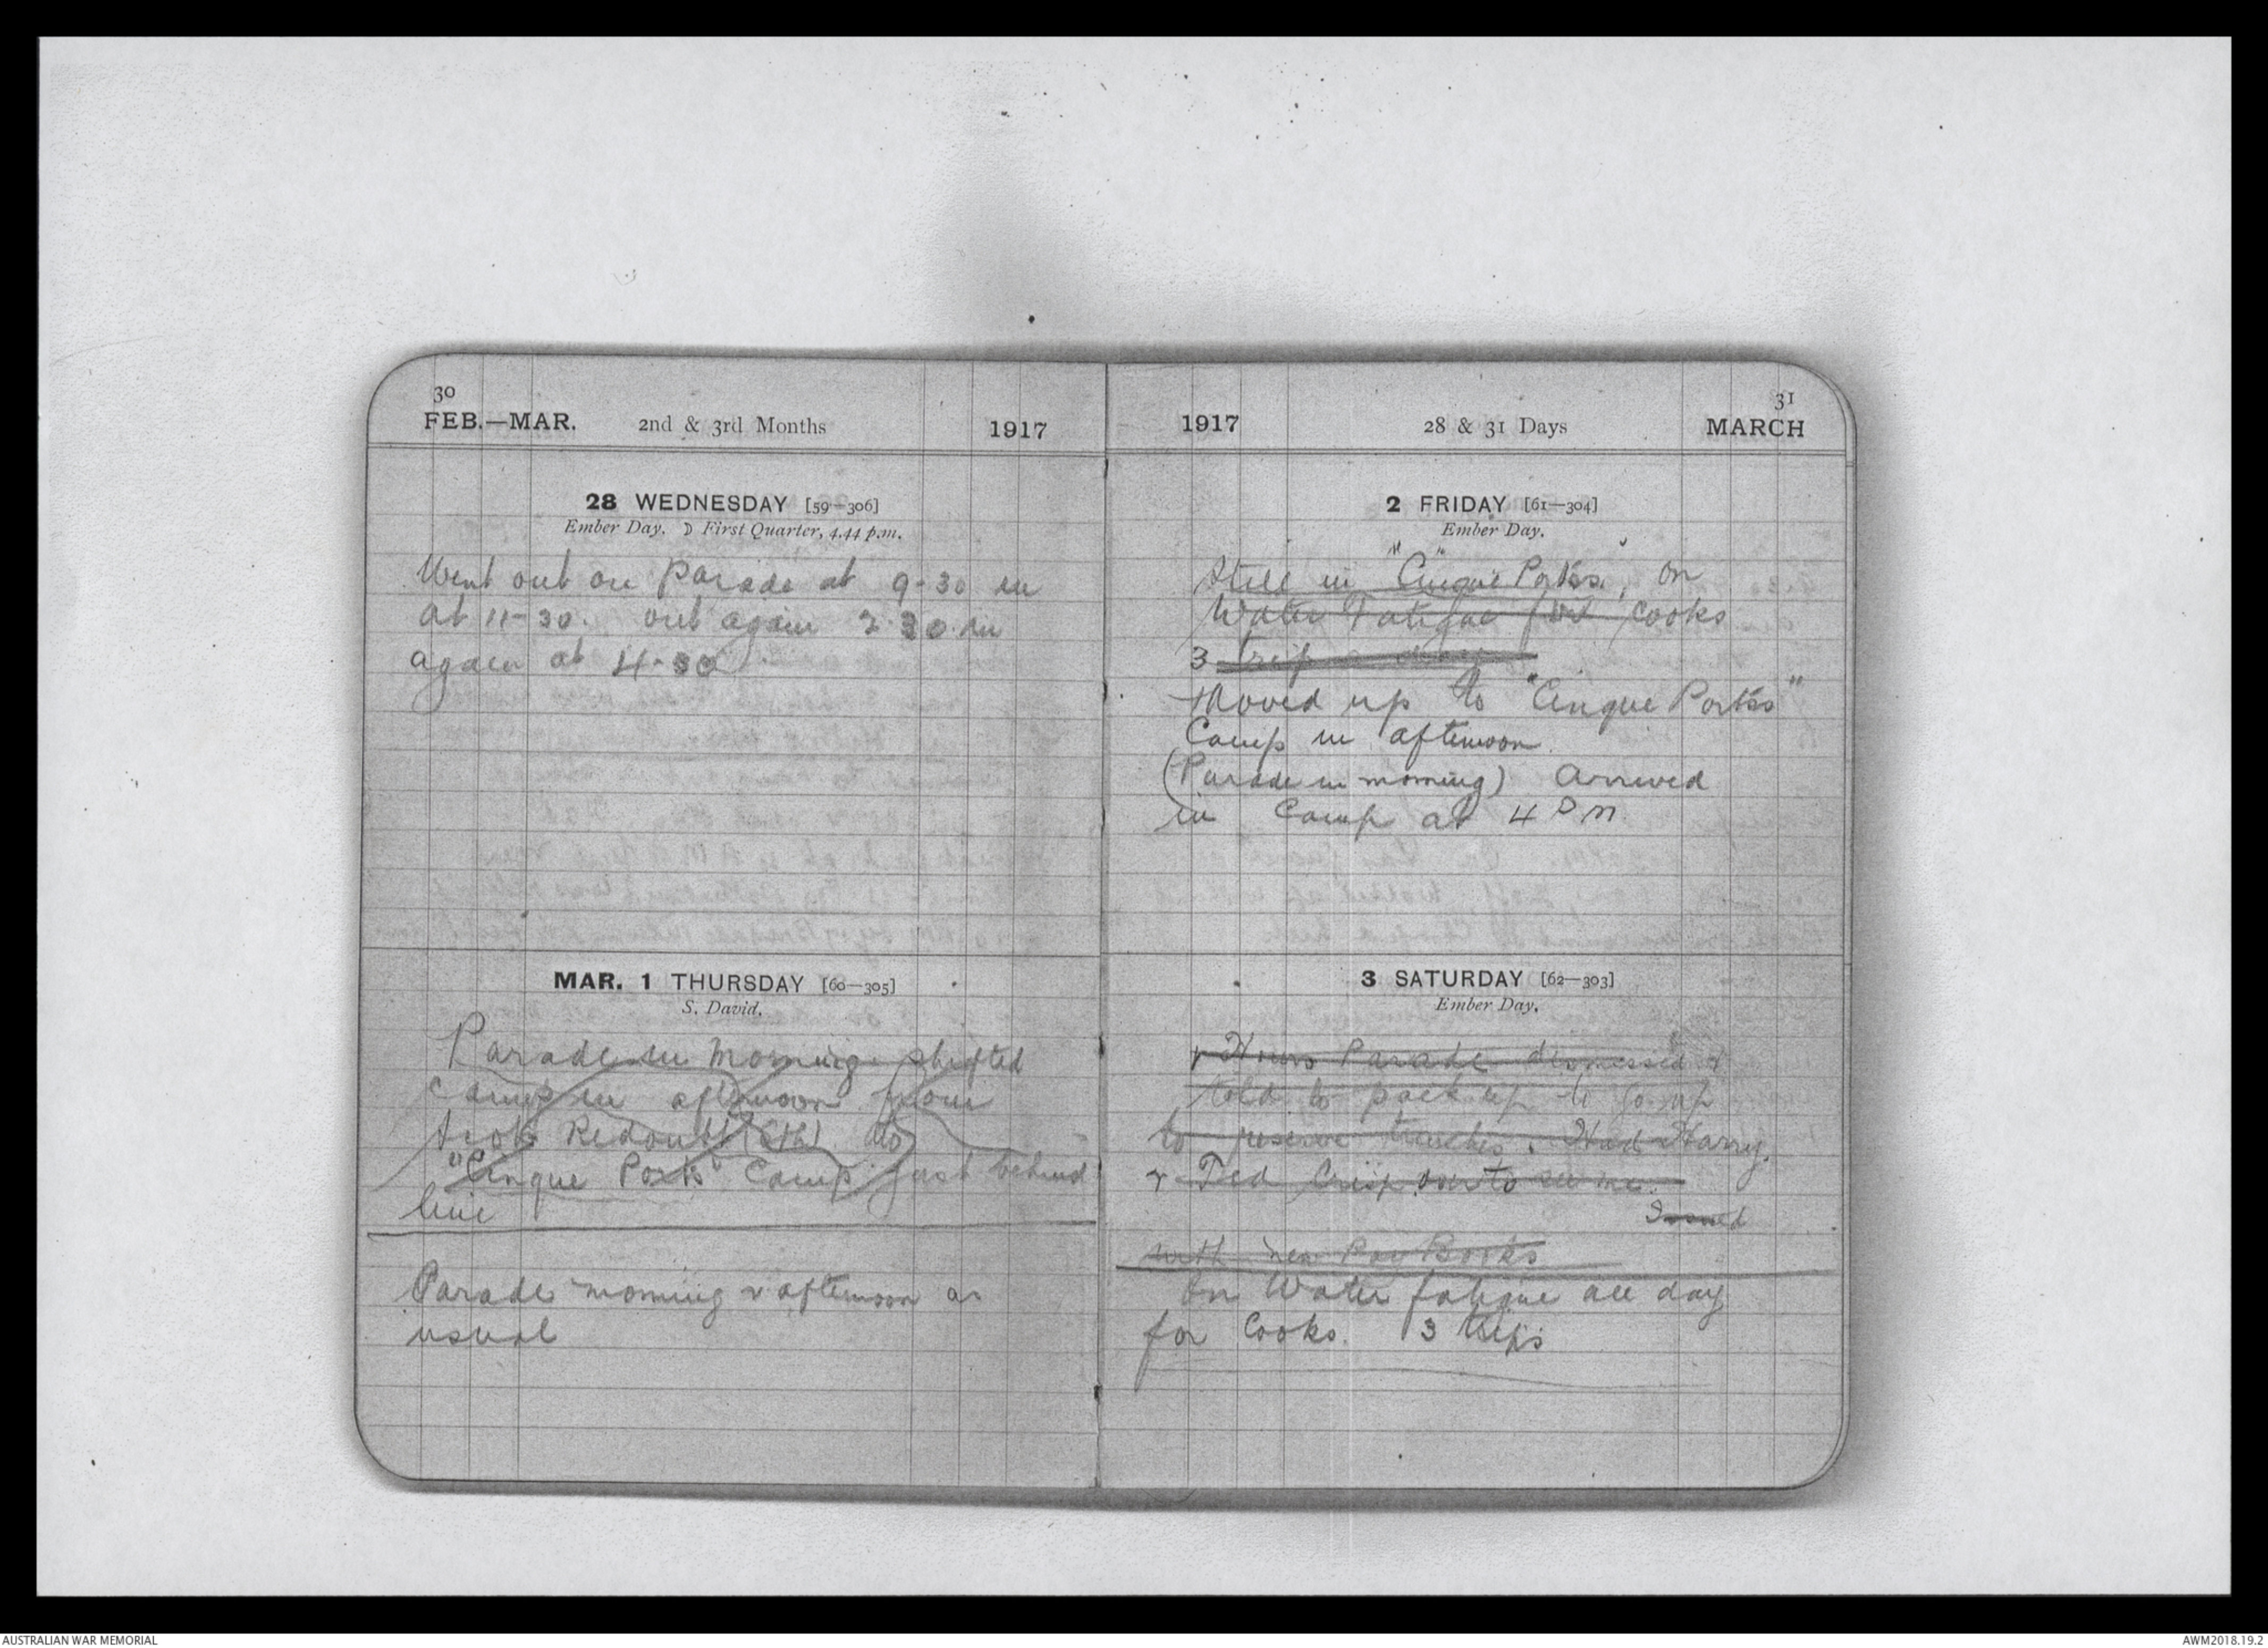 30
FEB.—MAR. 2nd & 3rd Months 1917
28 WEDNESDAY [59—306]
Ember Day. ☽ First Quarter, 4.44 p.m.
Went out on Parade at 9-30 in
at 11-30. out again 2.30. in
again at 4-30
MAR. 1 THURSDAY [60—305]
S. David.
Parade in morning shifted
camp in afternoon from
Redoubt to
"Cinque Ports" Camp just behind
line
Parade morning & afternoon as
usual
31
1917 28 & 31 Days MARCH
2 FRIDAY [61—304]
Ember Day.
Still in "Cinque Ports", on
Water Fatigue for cooks
3 trips a day
Moved up to "Cinque Ports"
Camp in afternoon.
(Parade in morning) Arrived
in Camp at 4 PM
3 SATURDAY [62—303]
Ember Day.
Parade dismissed &
told to pack up to go up
to reserve trenches. Had Harry
& Ted Crisp over to see me.
Issued
with new Pay Books
On Water fatigue all day
for Cooks. 3 trips
AUSTRALIAN WAR MEMORIAL AWM2018.19.2